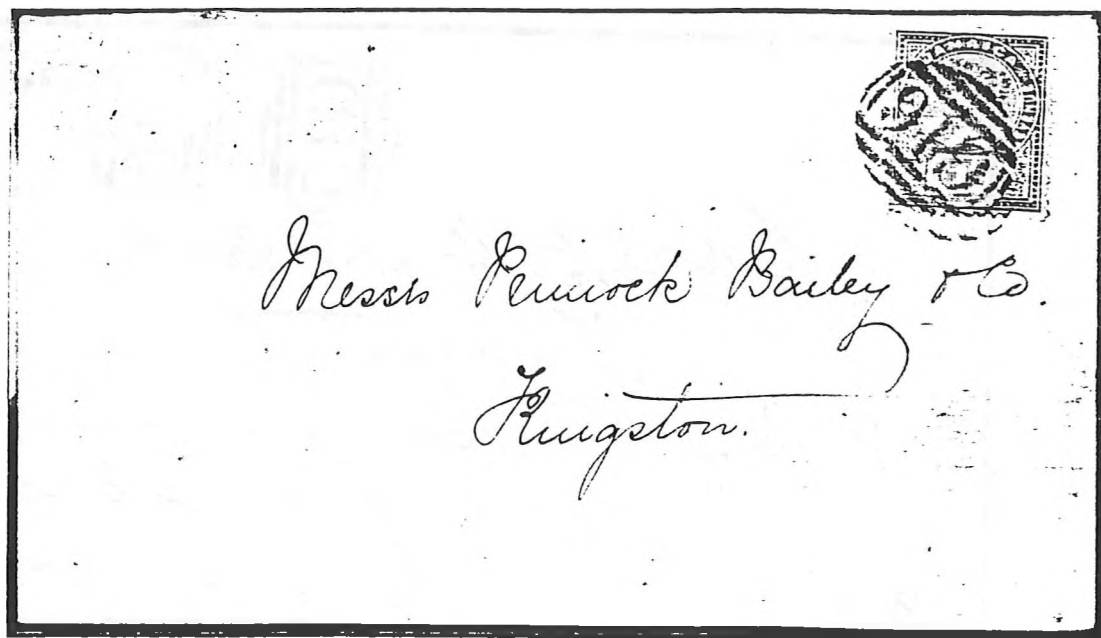 JAMAICA
Messrs Pennock Bailey & Co.
Kingston.